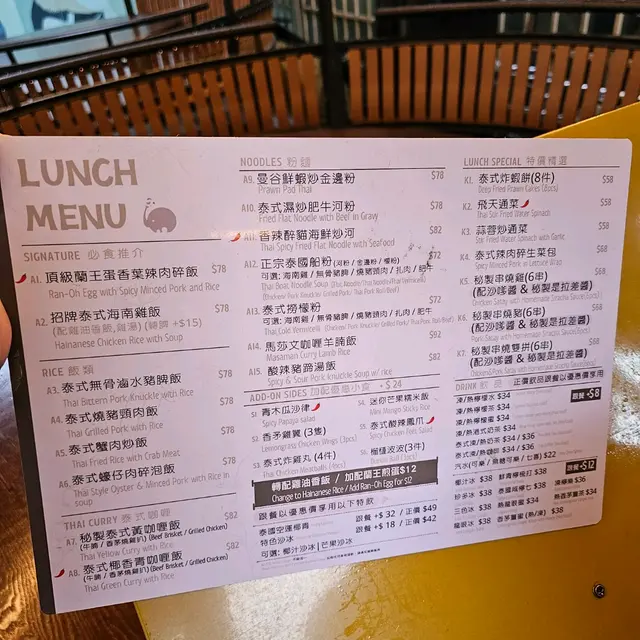 LUNCH
MENU
SIGNATURE 必食推介
A1. 頂級蘭王蛋香葉辣肉碎飯 $78
Ran-Oh Egg with Spicy Minced Pork and Rice
A2. 招牌泰式海南雞飯 $78
(配雞油香飯,雞湯) (轉髀 +$15)
Hainanese Chicken Rice with Soup
RICE 飯類
A3. 泰式無骨滷水豬脾飯 $78
Thai Bittern Pork Knuckle with Rice
A4. 泰式燒豬頸肉飯 $78
Thai Grilled Pork with Rice
A5. 泰式蟹肉炒飯 $78
Thai Fried Rice with Crab Meat
A6. 泰式蠔仔肉碎泡飯 $78
Thai Style Oyster & Minced Pork with Rice in Soup
THAI CURRY 泰式咖喱
A7. 秘製泰式黃咖喱飯 $82
(牛腩 / 香茅燒雞扒) (Beef Brisket / Grilled Chicken)
Thai Yellow Curry with Rice
A8. 泰式椰香青咖喱飯 $82
(牛腩 / 香茅燒雞扒) (Beef Brisket / Grilled Chicken)
Thai Green Curry with Rice
NOODLES 粉麵
A9. 曼谷鮮蝦炒金邊粉 $78
Prawn Pad Thai
A10. 泰式濕炒肥牛河粉 $78
Fried Flat Noodle with Beef in Gravy
A11. 香辣醉貓海鮮炒河 $82
Thai Spicy Fried Flat Noodle with SeaFood
A12. 正宗泰國船粉 (河粉 / 金邊粉 / 檬粉) $72
可選: 海南雞 / 無骨豬脾 / 燒豬頸肉 / 扎肉 / 肥牛
Thai Boat Noodle Soup
A13. 泰式撈檬粉 $72
可選: 海南雞 / 無骨豬脾 / 燒豬頸肉 / 扎肉 / 肥牛
A14. 馬莎文咖喱羊腩飯 $92
Masaman Curry Lamb Rice
A15. 酸辣豬踭湯飯 $82
Spicy & Sour Pork Knuckle Soup w/ rice
ADD-ON SIDES +$24
S1. 青木瓜沙律
Spicy Papaya salad
S2. 香茅雞翼 (3隻)
Lemongrass Chicken Wings (3pcs)
S3. 泰式炸雞丸 (4件)
Thai Chicken Meatballs (4pcs)
S4. 迷你芒果糯米飯
Mini Mango Sticky Rice
S5. 泰式酸辣鳳爪
Spicy Chicken Feet Salad
S6. 楊枝波波(3件)
轉配雞油香飯 / 加配蘭王煎蛋$12
Change to Hainanese Rice / Add Ran-Oh Egg for $12
跟餐以優惠價享用以下特飲
泰國空運椰青 跟餐 +$32 / 單點 $49
特色沙冰 跟餐 +$18 / 單點 $42
可選: 椰汁沙冰 | 芒果沙冰
LUNCH SPECIAL 特價精選
K1. 泰式炸蝦餅(8件) $58
Deep Fried Prawn Cakes (8pcs)
K2. 飛天通菜 $58
Thai Stir Fried Water Spinach
K3. 蒜蓉炒通菜 $58
Stir Fried Water Spinach with Garlic
K4. 泰式辣肉碎生菜包 $58
Spicy Minced Pork in Lettuce Wrap
K5. 秘製串燒雞(6串) $68
(配沙嗲醬 & 秘製是拉差醬)
K6. 秘製串燒豬(6串) $68
(配沙嗲醬 & 秘製是拉差醬)
K7. 秘製串燒雙拼(6串) $68
(配沙嗲醬 & 秘製是拉差醬)
DRINK 飲品 正價飲品跟餐以優惠價享用
跟餐 +$8
凍/熱檸檬水 $34
凍/熱檸檬茶 $34
凍/熱檸蜜 $34
凍/熱港式奶茶 $34
泰式凍/熱奶茶 $34 / $36
泰式凍/熱咖啡 $34 / $36
跟餐 +$12
椰汁冰 $38
珍多冰 $38
三色冰 $38
龍眼冰 $38
鮮青檸梳打 $38
泰國咸檸七 $38
香茅薑蜜 (熱/凍) $38